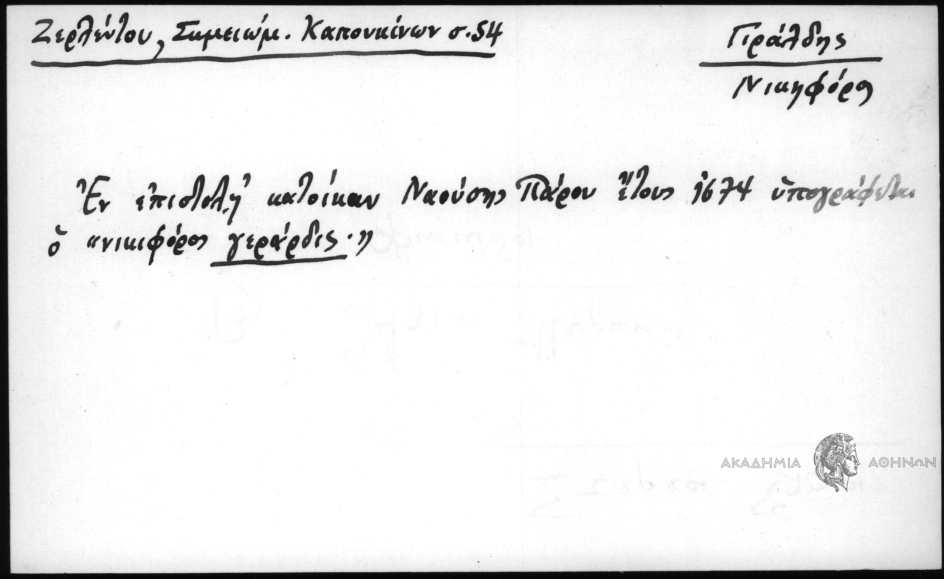 Ζερλέντου, Σημειώμ. Καπουκίνων σ. 54
Γιράλδης
Νικηφόρος
Ἐν ἐπιστολῇ κατοίκων Ναούσης Πάρου ἔτους 1674 ὑπογράφεται
ὁ «νικιφόρος γεράρδις·»
ΑΚΑΔΗΜΙΑ ΑΘΗΝΩΝ